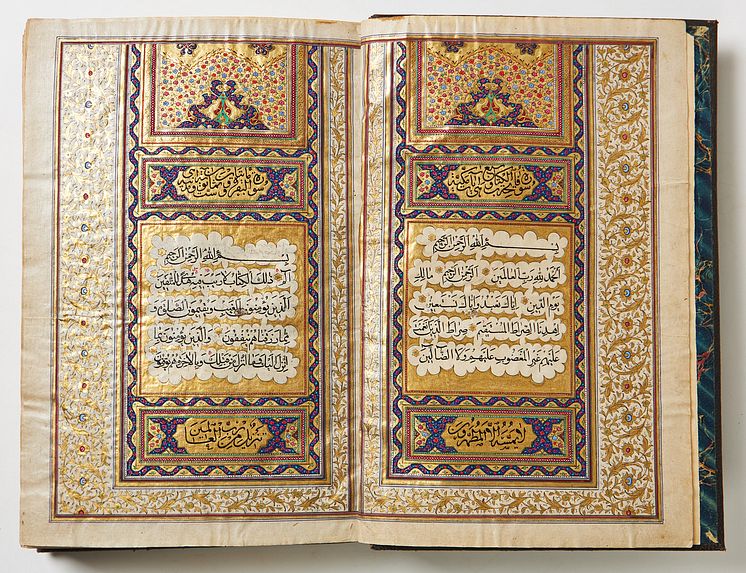 سورة فاتحة الكتاب
بسم الله الرحمن الرحيم
الحمد لله رب العالمين الرحمن الرحيم مالك
يوم الدين اياك نعبد واياك نستعين
اهدنا الصراط المستقيم صراط الذين انعمت
عليهم غير المغضوب عليهم ولا الضالين
لا يمسه الا المطهرون
سورة البقرة
بسم الله الرحمن الرحيم
الم ذلك الكتاب لا ريب فيه هدى للمتقين
الذين يؤمنون بالغيب ويقيمون الصلوة و
مما رزقناهم ينفقون والذين يؤمنون بما
انزل اليك وما انزل من قبلك وبالاخرة هم يوقنون
تنزيل من رب العالمين